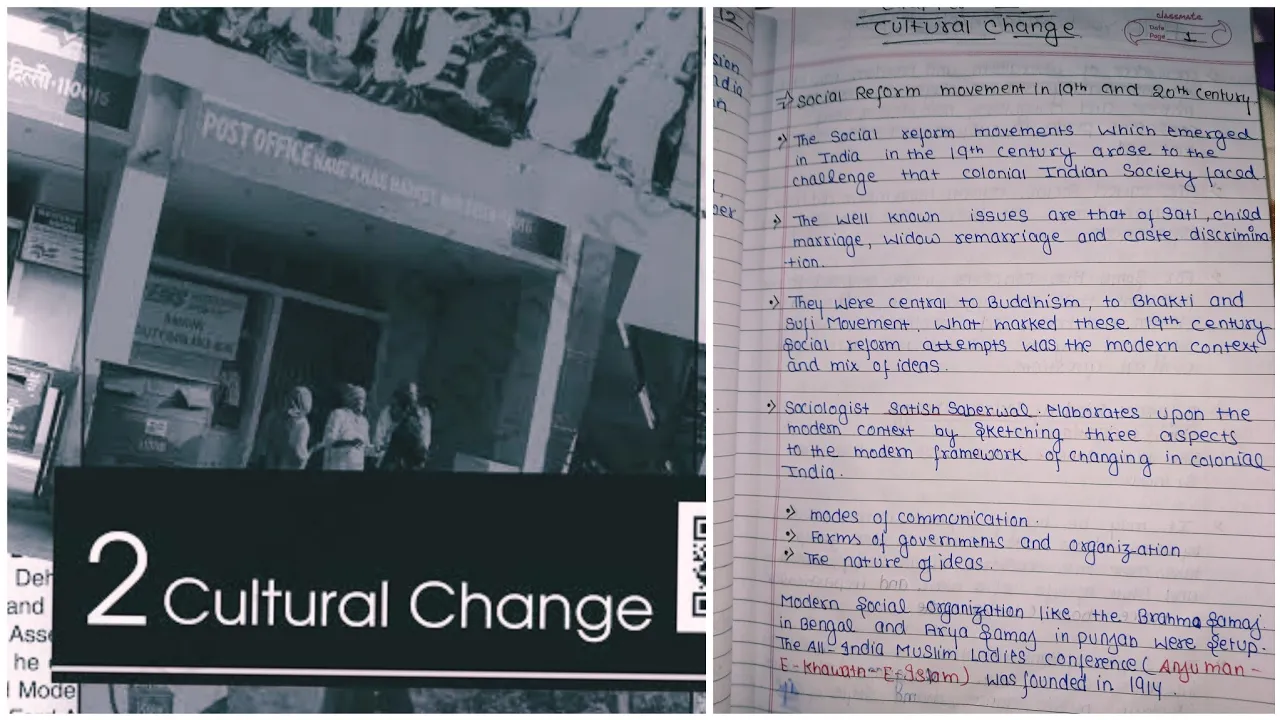 दिल्ली-110016
POST OFFICE HAUZ KHAS MARKET
2 Cultural Change
Deh
and
Asse
he
Mode
12
sion
ndia
in
Cultural Change
classmate
Date
Page 1
Social Reform movement in 19th and 20th century
The social reform movements which emerged
in India in the 19th century arose to the
challenge that colonial Indian Society faced.
The well known issues are that of Sati, child
marriage, widow remarriage and caste discrimina
-tion.
They were central to Buddhism, to Bhakti and
Sufi Movement. What marked these 19th century
Social reform attempts was the modern context
and mix of ideas.
Sociologist Satish Saberwal. Elaborates upon the
modern context by Sketching three aspects
to the modern framework of changing in colonial
India.
modes of communication.
Forms of governments and organization
The nature of ideas.
Modern Social organization like the Brahma Samaj.
in Bengal and Arya Samaj in punjab were Setup.
The All-India Muslim Ladies conference (Anjuman-
E-Khawatn-E-Islam) was founded in 1914.